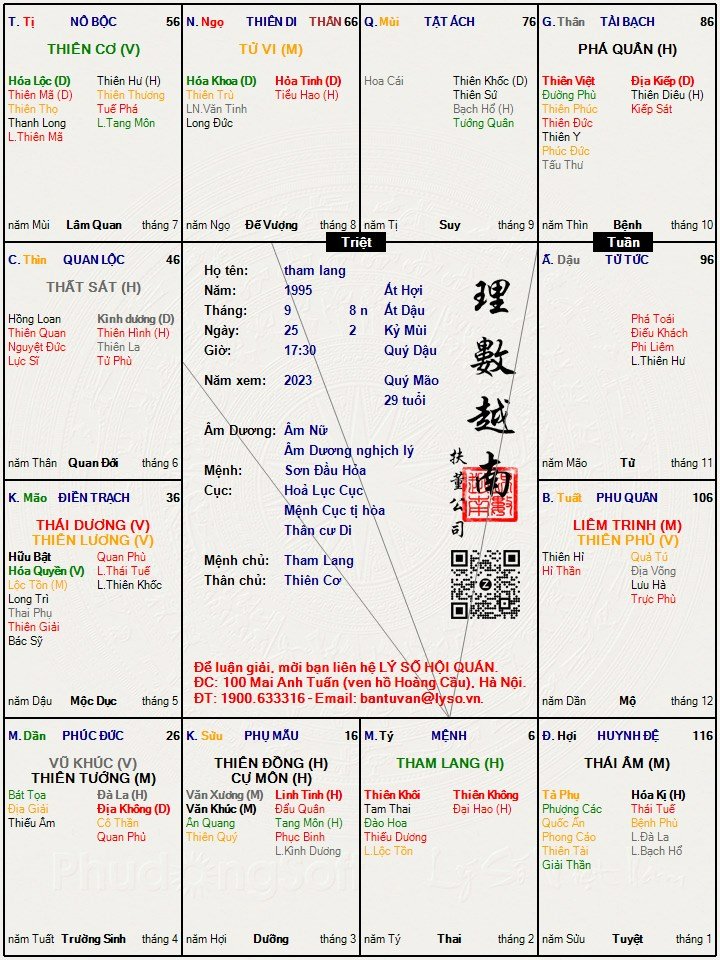 T. Tị NÔ BỘC 56
THIÊN CƠ (V)
Hóa Lộc (D) Thiên Hư (H)
Thiên Mã (D) Thiên Thương
Thiên Thọ Tuế Phá
Thanh Long L.Tang Môn
L.Thiên Mã
năm Mùi Lâm Quan tháng 7
N. Ngọ THIÊN DI THÂN 66
TỬ VI (M)
Hóa Khoa (D) Hỏa Tinh (D)
Thiên Trù Tiểu Hao (H)
LN.Văn Tinh
Long Đức
năm Ngọ Đế Vượng tháng 8
Q. Mùi TẬT ÁCH 76
Hoa Cái Thiên Khốc (D)
Thiên Sứ
Bạch Hổ (H)
Tướng Quân
năm Tị Suy tháng 9
G. Thân TÀI BẠCH 86
PHÁ QUÂN (H)
Thiên Việt Địa Kiếp (D)
Đường Phù Thiên Diêu (H)
Thiên Phúc Kiếp Sát
Thiên Đức
Thiên Y
Phúc Đức
Tấu Thư
năm Thìn Bệnh tháng 10
Triệt
Tuần
C. Thìn QUAN LỘC 46
THẤT SÁT (H)
Hồng Loan Kình dương (D)
Thiên Quan Thiên Hình (H)
Nguyệt Đức Thiên La
Lực Sĩ Tử Phù
năm Thân Quan Đới tháng 6
Họ tên: tham lang
Năm: 1995 Ất Hợi
Tháng: 9 8 n Ất Dậu
Ngày: 25 2 Kỷ Mùi
Giờ: 17:30 Quý Dậu
Năm xem: 2023 Quý Mão
29 tuổi
Âm Dương: Âm Nữ
Âm Dương nghịch lý
Mệnh: Sơn Đầu Hỏa
Cục: Hoả Lục Cục
Mệnh Cục tị hòa
Thân cư Di
Mệnh chủ: Tham Lang
Thân chủ: Thiên Cơ
理數越南
扶董公司
Để luận giải, mời bạn liên hệ LÝ SỐ HỘI QUÁN.
ĐC: 100 Mai Anh Tuấn (ven hồ Hoàng Cầu), Hà Nội.
ĐT: 1900.633316 - Email: bantuvan@lyso.vn.
Ấ. Dậu TỬ TỨC 96
Phá Toái
Điếu Khách
Phi Liêm
L.Thiên Hư
năm Mão Tử tháng 11
K. Mão ĐIỀN TRẠCH 36
THÁI DƯƠNG (V)
THIÊN LƯƠNG (V)
Hữu Bật Quan Phù
Hóa Quyền (V) L.Thái Tuế
Lộc Tồn (M) L.Thiên Khốc
Long Trì
Thai Phụ
Thiên Giải
Bác Sỹ
năm Dậu Mộc Dục tháng 5
B. Tuất PHU QUÂN 106
LIÊM TRINH (M)
THIÊN PHỦ (V)
Thiên Hỉ Quả Tú
Hỉ Thần Địa Võng
Lưu Hà
Trực Phù
năm Dần Mộ tháng 12
M. Dần PHÚC ĐỨC 26
VŨ KHÚC (V)
THIÊN TƯỚNG (M)
Bát Tọa Đà La (H)
Địa Giải Địa Không (D)
Thiếu Âm Cô Thần
Quan Phủ
năm Tuất Trường Sinh tháng 4
K. Sửu PHỤ MẪU 16
THIÊN ĐỒNG (H)
CỰ MÔN (H)
Văn Xương (M) Linh Tinh (H)
Văn Khúc (M) Đẩu Quân
Ân Quang Tang Môn (H)
Thiên Quý Phục Binh
L.Kình Dương
năm Hợi Dưỡng tháng 3
M. Tý MỆNH 6
THAM LANG (H)
Thiên Khôi Thiên Không
Tam Thai Đại Hao (H)
Đào Hoa
Thiếu Dương
L.Lộc Tồn
năm Tý Thai tháng 2
Đ. Hợi HUYNH ĐỆ 116
THÁI ÂM (M)
Tả Phụ Hóa Kị (H)
Phượng Các Thái Tuế
Quốc Ấn Bệnh Phù
Phong Cáo L.Đà La
Thiên Tài L.Bạch Hổ
Giải Thần
năm Sửu Tuyệt tháng 1